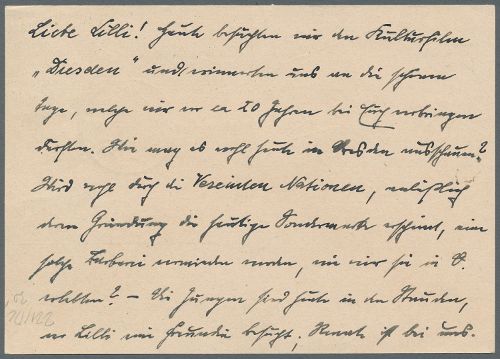 Liebe Lilli! Heute besuchten wir den Kulturfilm
„Dresden" und erinnerten uns an die schönen
Tage, welche wir vor ca 20 Jahren bei Euch verbringen
durften. Wie mag es wohl heute in Dresden ausschauen?
Wird wohl durch die Vereinten Nationen, anläßlich
deren Gründung die heutige Sondermarke erscheint, eine
solche Barbarei vermieden werden, wie wir sie in D.
erlebten? – Die Jungen sind heute in den
wo Lilli eine Freundin besucht; Renate ist bei uns.